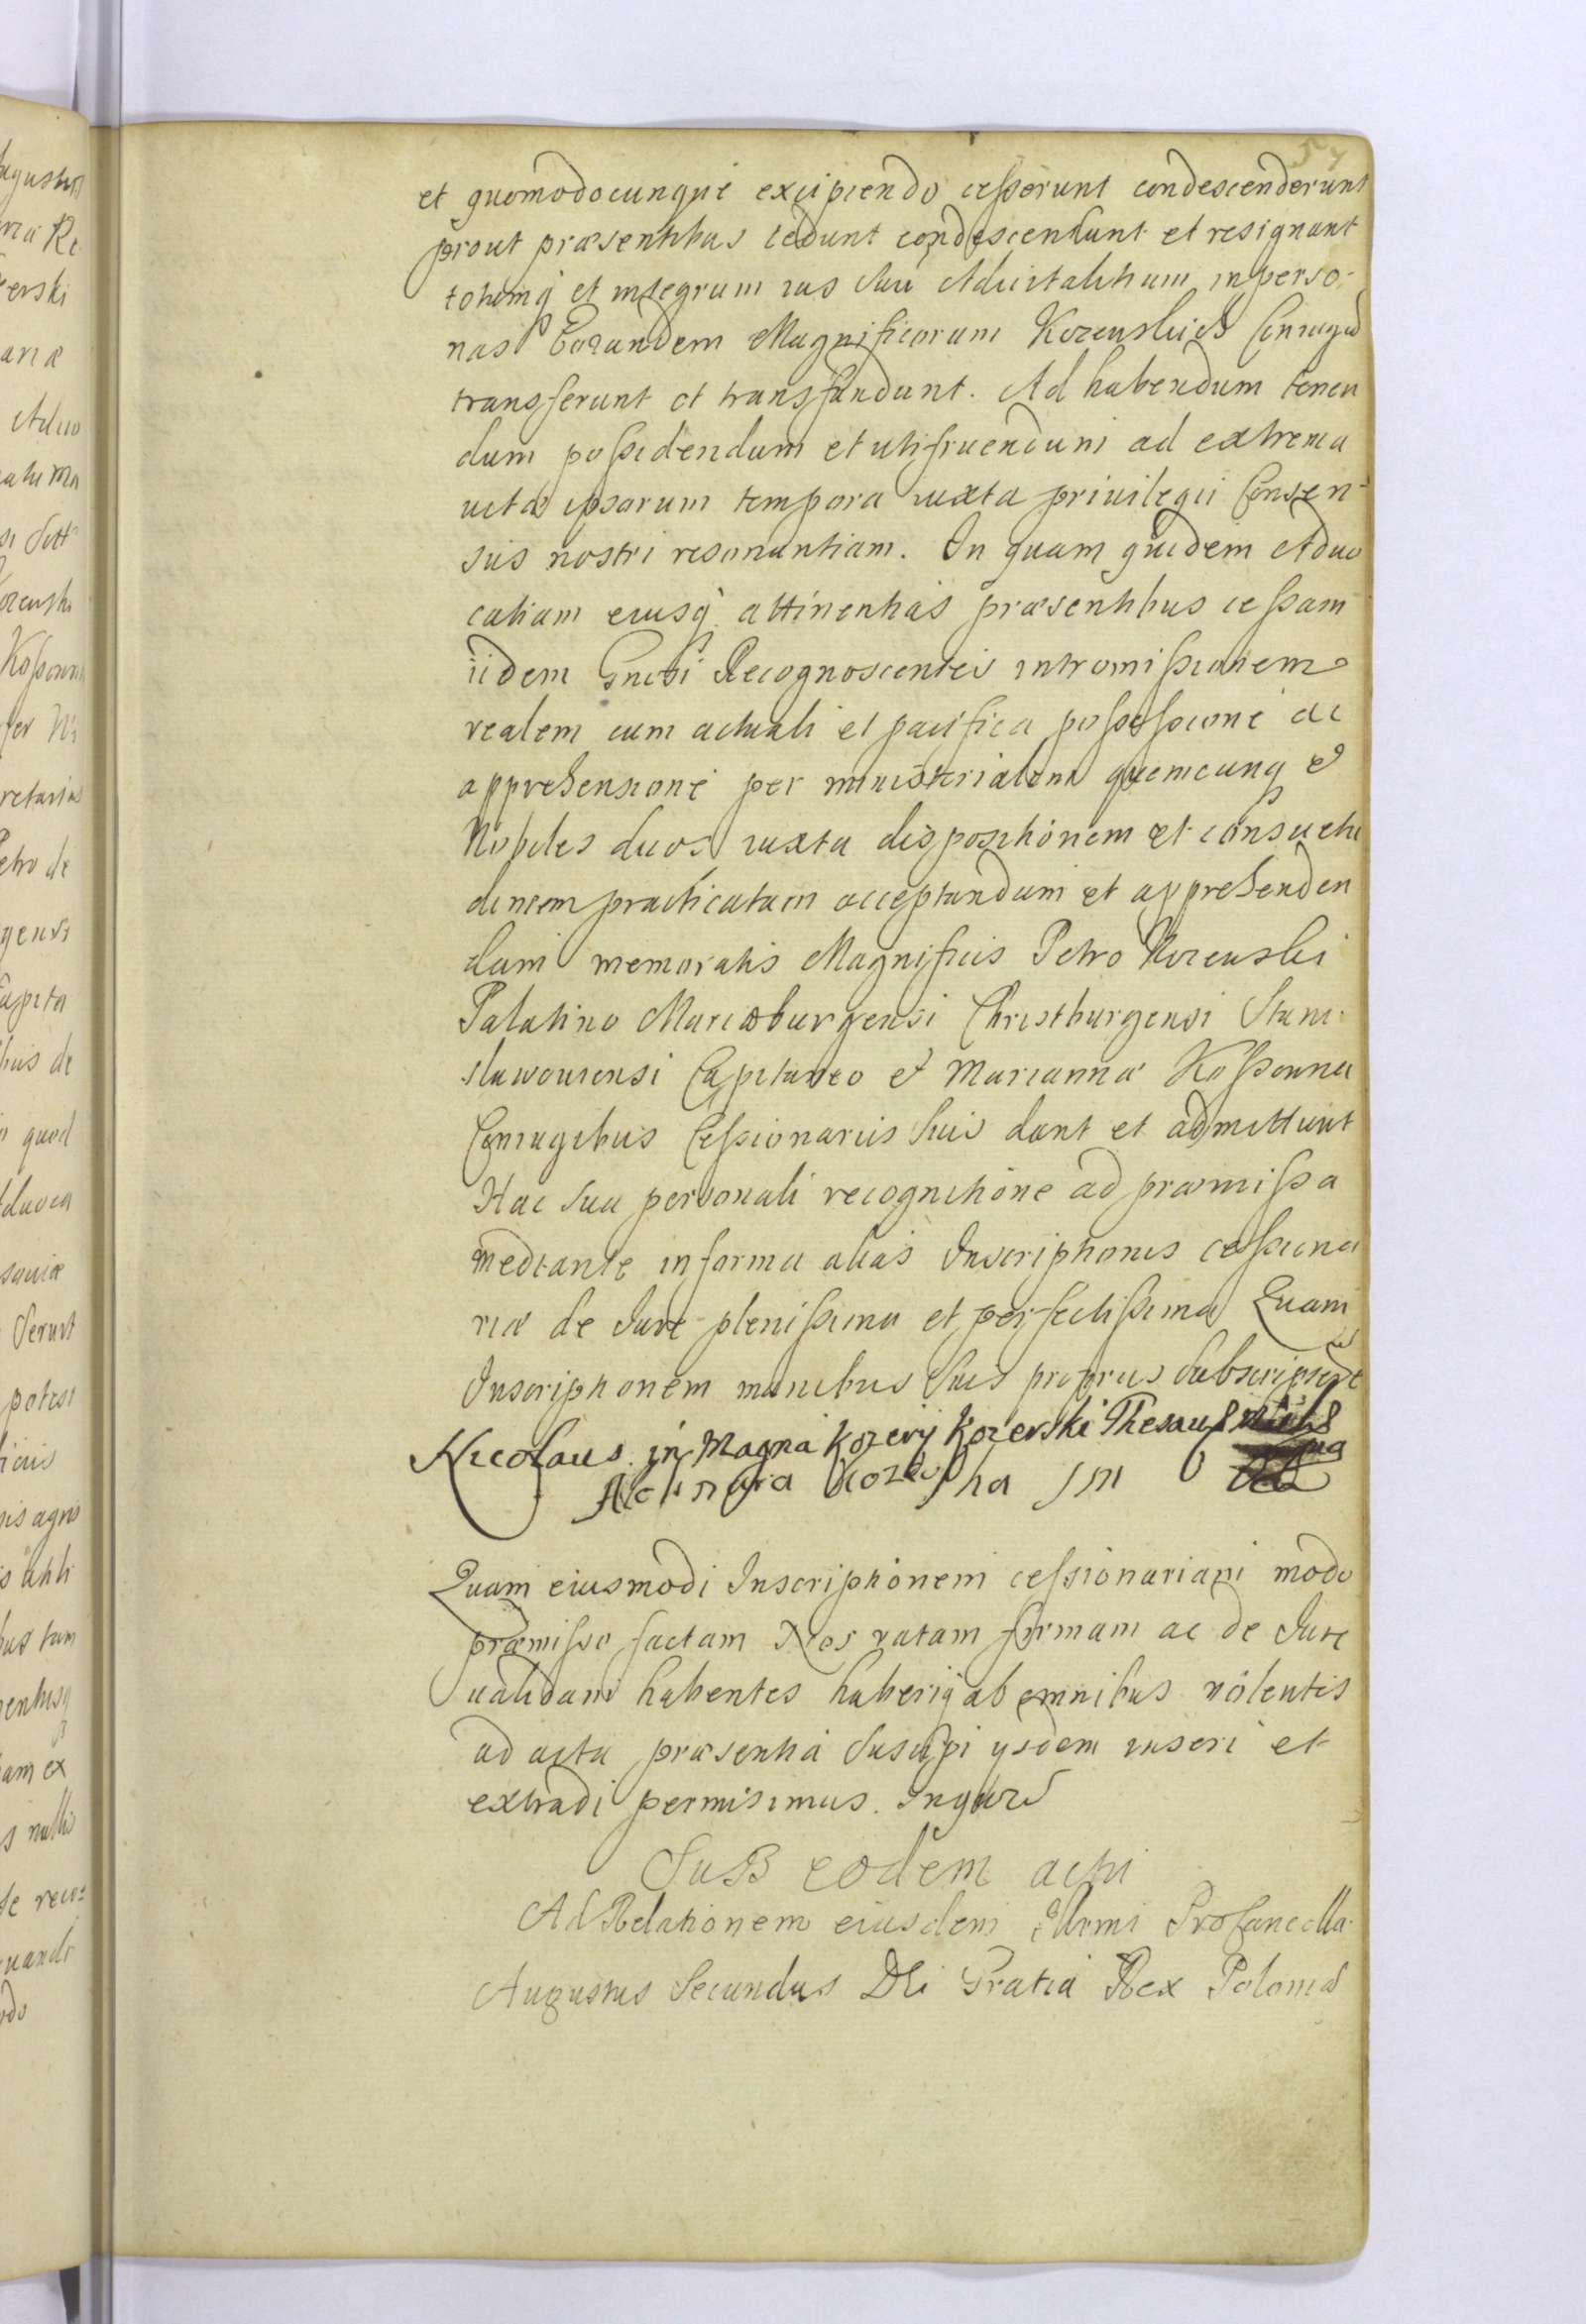 57
et quomodocunque excipiendo cesserunt condescenderunt
prout præsentibus cedunt condescendunt et resignant
totumq et integrum ius suū Aduitalitium in perso-
nas Eorundem Magnificorum Kozenskich Coniugū
transferunt et transfundunt. Ad habendum tenen
dum possidendum et utifruendum ad extrema
uitæ ipsorum tempora iuxta priuilegii Consen-
sus nostri resonantiam. In quam quidem Aduo
catiam eiusq attinentias præsentibus cessam
iidem Gnosi Recognoscentes intromissionem
realem cum actuali et pacifica possessione ac
apprehensione per ministerialem quemcunq et
Nobiles duos iuxta dispositionem et consuetu
dinem practicatam acceptandam et apprehenden
dam memoratis Magnificis Petro Kozenski
Palatino Mariæburgensi Christburgensi Stani-
slawouiensi Capitaneo et Mariannæ Kossowna
Coniugibus Cessionariis suis dant et admittunt
Hac sua personali recognitione ad præmissa
mediante in forma alias Inscriptionis cessiona
riæ de Jure plenissima et perfectissima Quam
Inscriptionem manibus suis propriis subscripserūt
Nicolaus in Magna Kozery Kozerski Thesau
Quam eiusmodi Inscriptionem cessionariam modo
præmisso factam Nos ratam firmam ac de Jure
ualidam habentes haberiq ab omnibus uolentes
ad acta præsentia suscipi ysdem inseri et
extradi permisimus. In quor
Sub eodem actu
Ad Relationem eiusdem Illrmi Procancella
Augustus Secundus Dei Gratia Rex Poloniæ